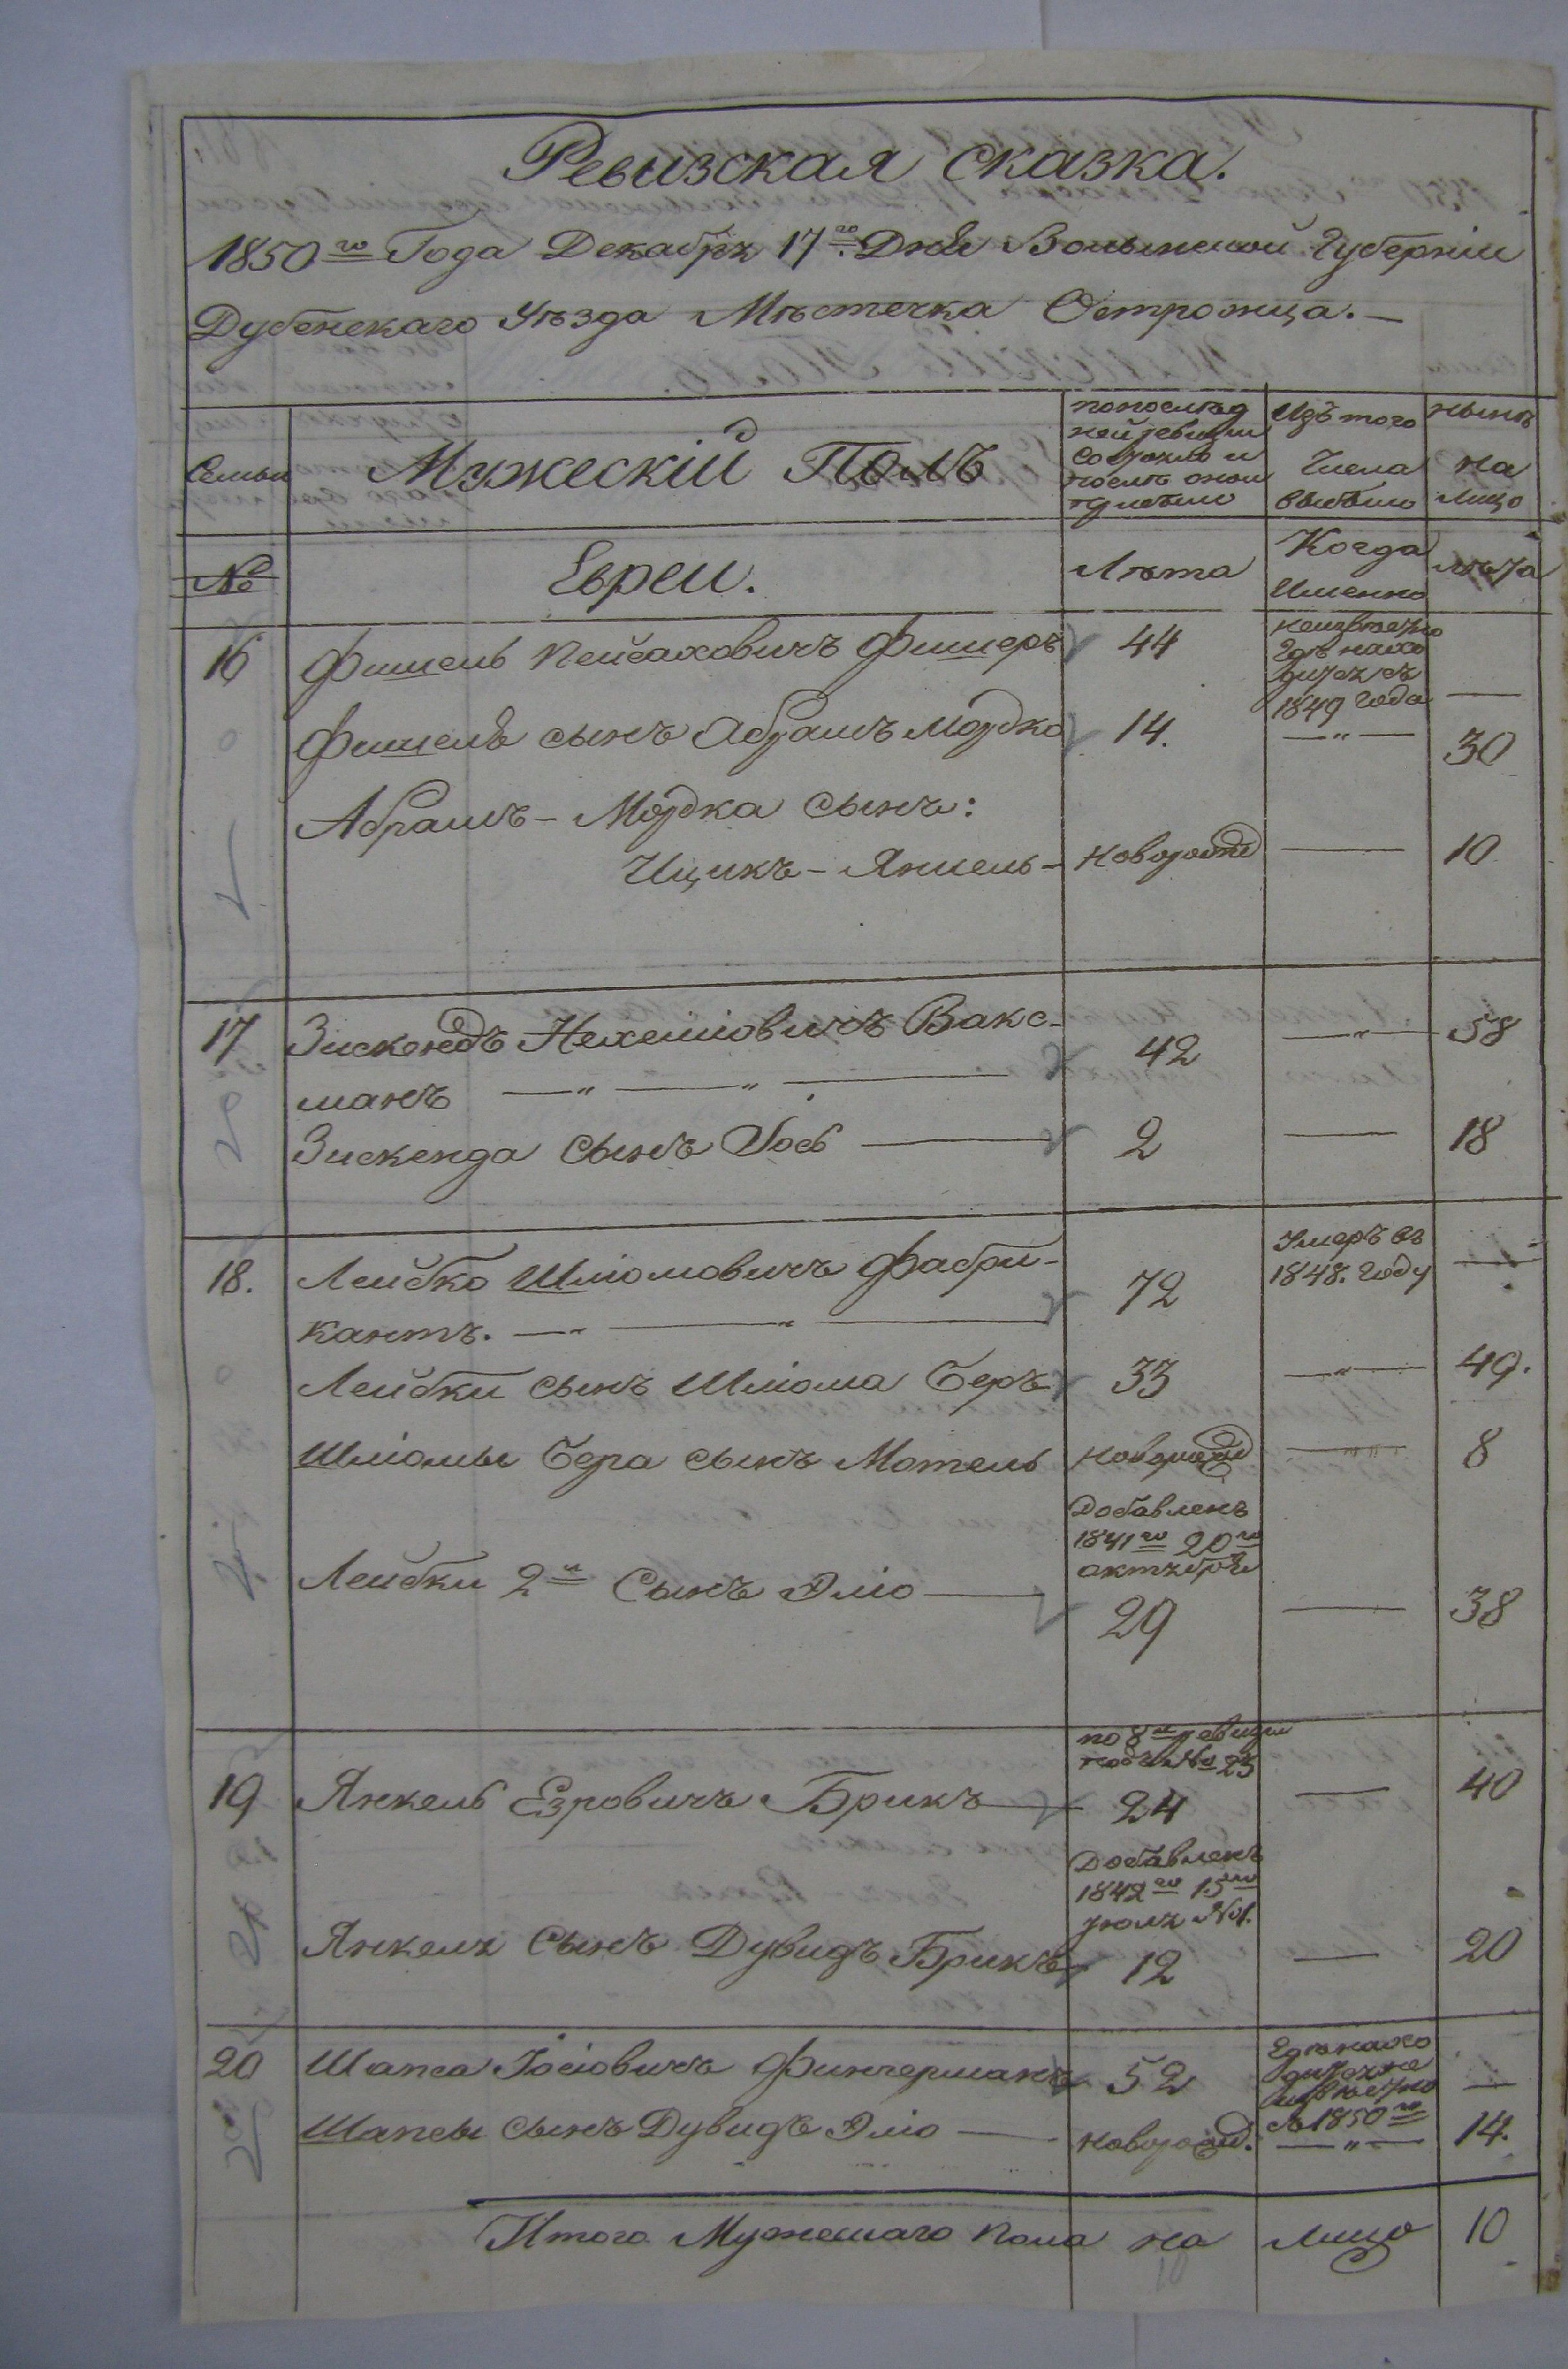 Ревизская сказка.
1850го Года Декабря 17го Дня Волынской Губерніи
Дубенскаго Уѣзда Мѣстечка Остромца.—
Семьи
Мужескій Полъ
по послѣд
ней ревизіи
состояло и
послѣ оной
прибыло
Изъ того
Числа
выбыло
нынѣ
на
лицо
№
Евреи.
Лѣта
Когда
Именно
лѣта
16
Фишель Пейсаховичъ Фишеръ
44
неизвѣстно
гдѣ нахо
дится съ
1849 года
—
Фишеля сынъ Абрамъ Мордко
14.
— " —
30
Абрамъ - Мордка сынъ:
Ицикъ - Янкель -
новорожд
—
10
17
Зискендъ Нехеміовичъ Вакс-
манъ — " — " —
42
— " —
58
Зискенда сынъ Іось —
2
—
18
18.
Лейбко Шліомовичъ Фабри-
кантъ. — " — " —
72
Умеръ въ
1848. году
—
Лейбки сынъ Шліома Беръ
33
— " —
49.
Шліомы Бера сынъ Мотель
новорожд
—
8
Лейбки 2й Сынъ Эліо —
Добавленъ
1841го 20го
октября
29
—
38
19
Янкель Езровичъ Брикъ —
по 8й ревизіи
подъ № 23
24
—
40
Янкеля Сынъ Дувидъ Брикъ
Добавленъ
1842го 15го
іюля №1.
12
—
20
20
Шапса Іосіовичъ Финчерманъ
52
Гдѣ нахо
дится не
извѣстно
съ 1850го
—
Шапсы сынъ Дувидъ Эліо —
новорожд.
— " —
14.
Итого Мужескаго пола на лицо 10